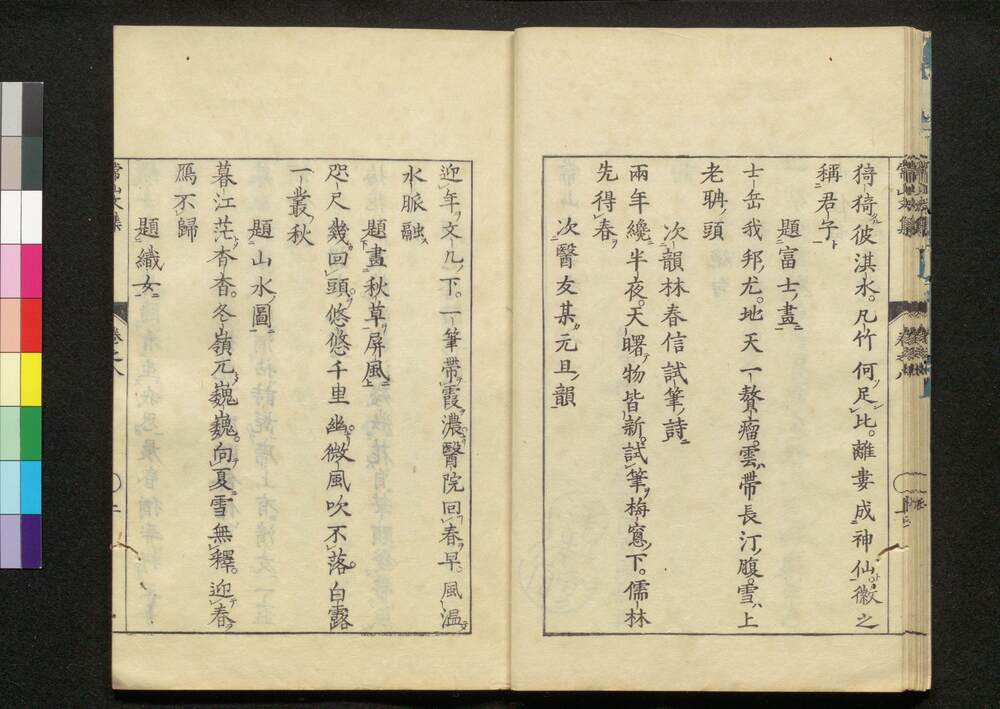 猗猗彼淇水。凡竹何足比。離婁成神仙。徽之
稱君子
題富士畫
士岳我邦尤。地天一贅瘤。雲帶長汀腹。雪上
老聃頭
次韻林春信試筆詩
兩年纔半夜。天曙物皆新。試筆梅窓下。儒林
先得春
次醫友某元旦韻
迎年文几下。一筆帶霞濃。醫院回春早。風溫
水脈融
題畫秋草屏風
咫尺幾回頭。悠悠千里幽。微風吹不落。白露
一叢秋
題山水圖
暮江茫杳杳。冬嶺兀巍巍。向夏雪無釋。迎春
鴈不歸
題織女
常山文集
卷之八